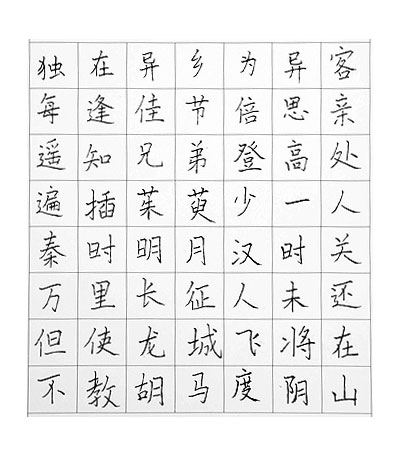 独在异乡为异客
每逢佳节倍思亲
遥知兄弟登高处
遍插茱萸少一人
秦时明月汉时关
万里长征人未还
但使龙城飞将在
不教胡马度阴山